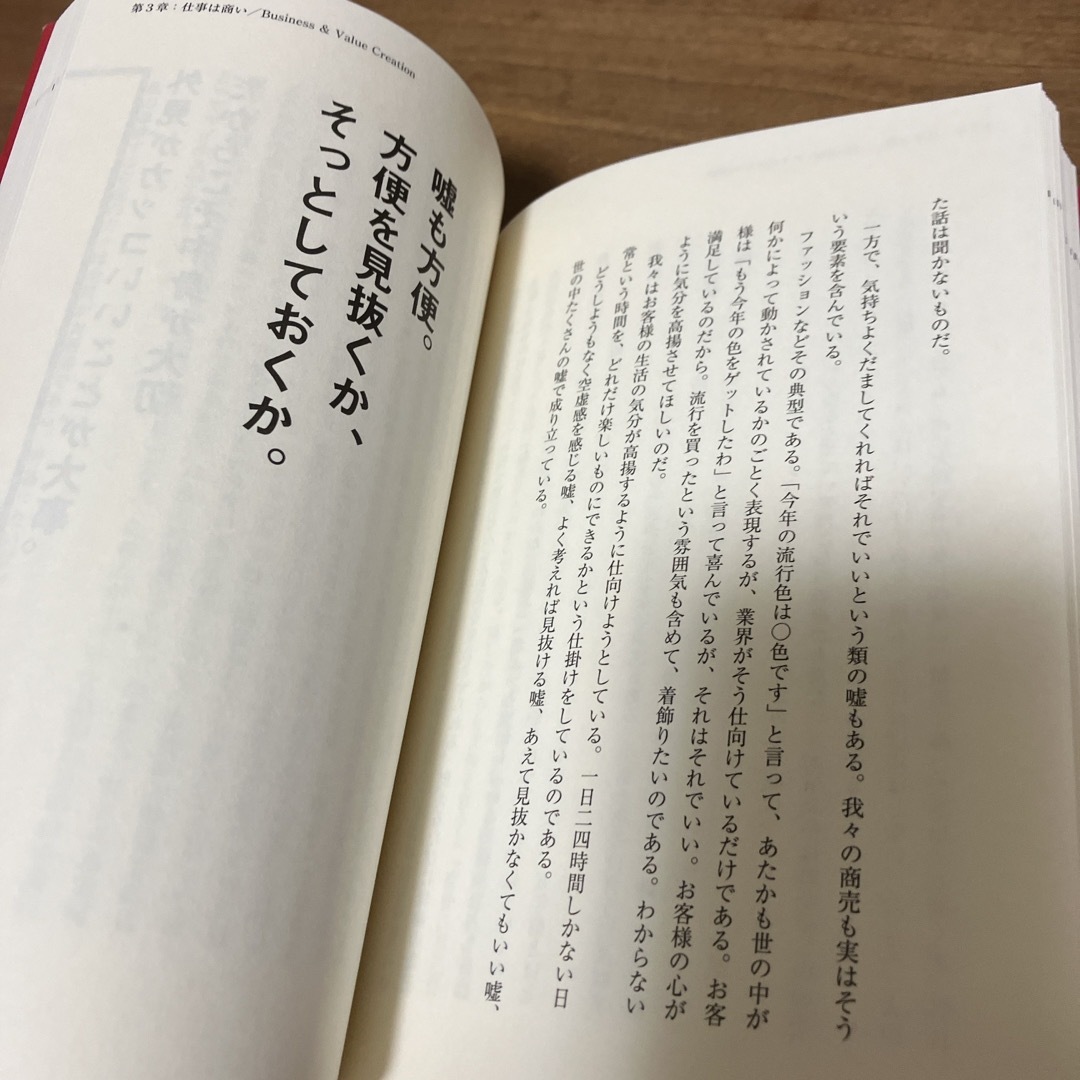 た話は聞かないものだ。
一方で、気持ちよくだましてくれればそれでいいという類の嘘もある。我々の商売も実はそう
いう要素を含んでいる。
ファッションなどその典型である。「今年の流行色は〇色です」と言って、あたかも世の中が
何かによって動かされているかのごとく表現するが、業界がそう仕向けているだけである。お客
様は「もう今年の色をゲットしたわ」と言って喜んでいるが、それはそれでいい。お客様の心が
満足しているのだから。流行を買ったという雰囲気も含めて、着飾りたいのである。わからない
ように気分を高揚させてほしいのだ。
我々はお客様の生活の気分が高揚するように仕向けようとしている。一日二四時間しかない日
常という時間を、どれだけ楽しいものにできるかという仕掛けをしているのである。
どうしようもなく空虚感を感じる嘘、よく考えれば見抜ける嘘、あえて見抜かなくてもいい嘘、
世の中たくさんの嘘で成り立っている。
第3章:仕事は商い/Business & Value Creation
嘘も方便。
方便を見抜くか、
そっとしておくか。